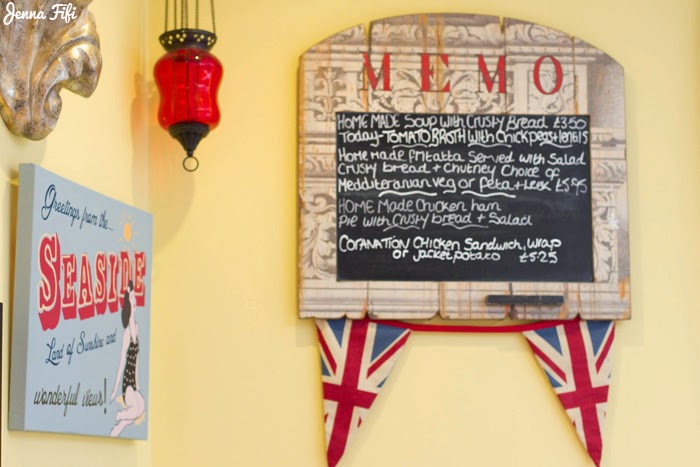 Jenna Fifi
MEMO
HOME MADE Soup with Crusty Bread £3.50
Today-TOMATO BROTH with Chick peas+lentils
Home made fritatta Served with Salad
Crusty bread + Chutney Choice of
Mediteranian veg or Feta + Leek £5.95
HOME Made Chicken ham
Pie with crusty bread + Salad
CORANATION Chicken Sandwich, Wrap
or jacket potato £5.25
Greetings from the...
SEASIDE
Land of Sunshine and
wonderful views!